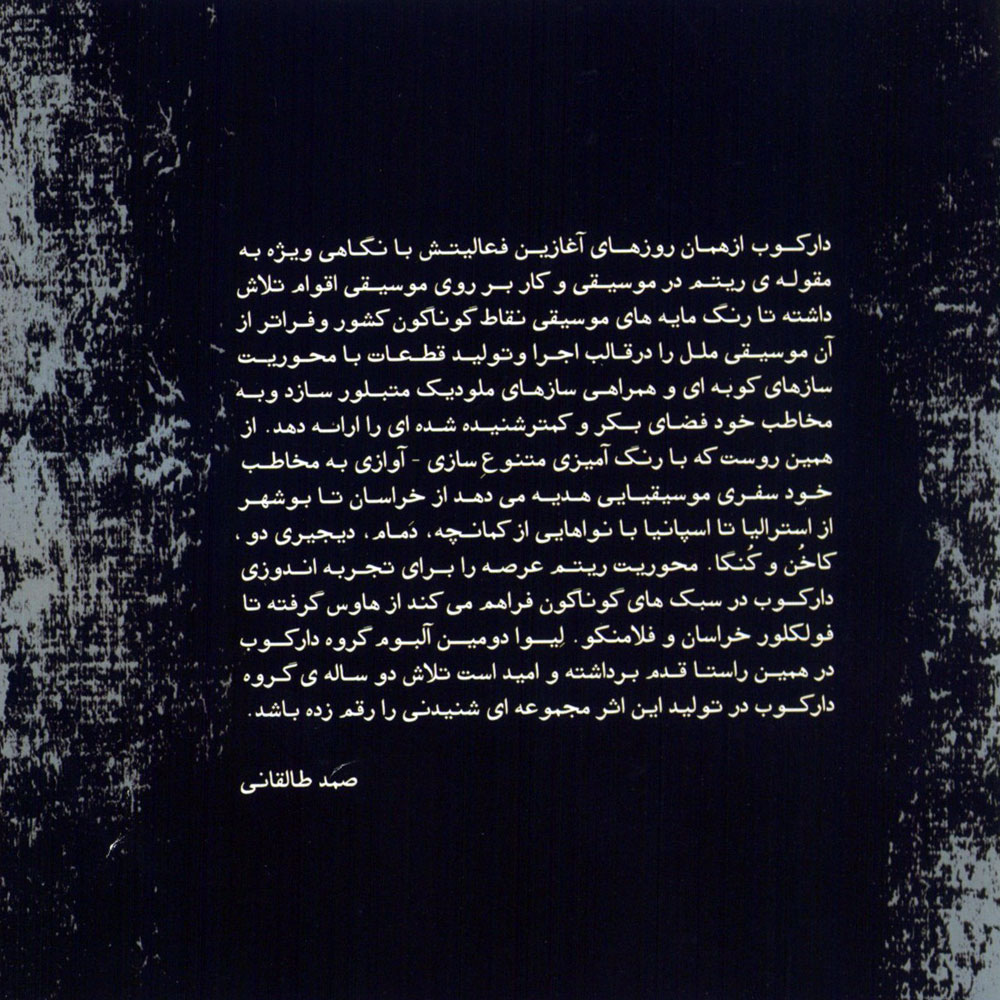 دارکوب ازهمان روزهای آغازین فعالیتش با نگاهی ویژه به
مقوله ی ریتم در موسیقی و کار بر روی موسیقی اقوام تلاش
داشته تا رنگ مایه های موسیقی نقاط گوناگون کشور وفراتر از
آن موسیقی ملل را درقالب اجرا وتولید قطعات با محوریت
سازهای کوبه ای و همراهی سازهای ملودیک متبلور سازد وبه
مخاطب خود فضای بکر و کمترشنیده شده ای را ارائه دهد. از
همین روست که با رنگ آمیزی متنوعِ سازی - آوازی به مخاطب
خود سفری موسیقیایی هدیه می دهد از خراسان تا بوشهر
از استرالیا تا اسپانیا با نواهایی از کمانچه، دَمام، دیجیری دو ،
کاخُن و کُنگا. محوریت ریتم عرصه را برای تجربه اندوزی
دارکوب در سبک های گوناگون فراهم می کند از هاوس گرفته تا
فولکلور خراسان و فلامنکو. لِیوا دومین آلبوم گروه دارکوب
در همین راستا قدم برداشته و امید است تلاش دو ساله ی گروه
دارکوب در تولید این اثر مجموعه ای شنیدنی را رقم زده باشد.
صمد طالقانی